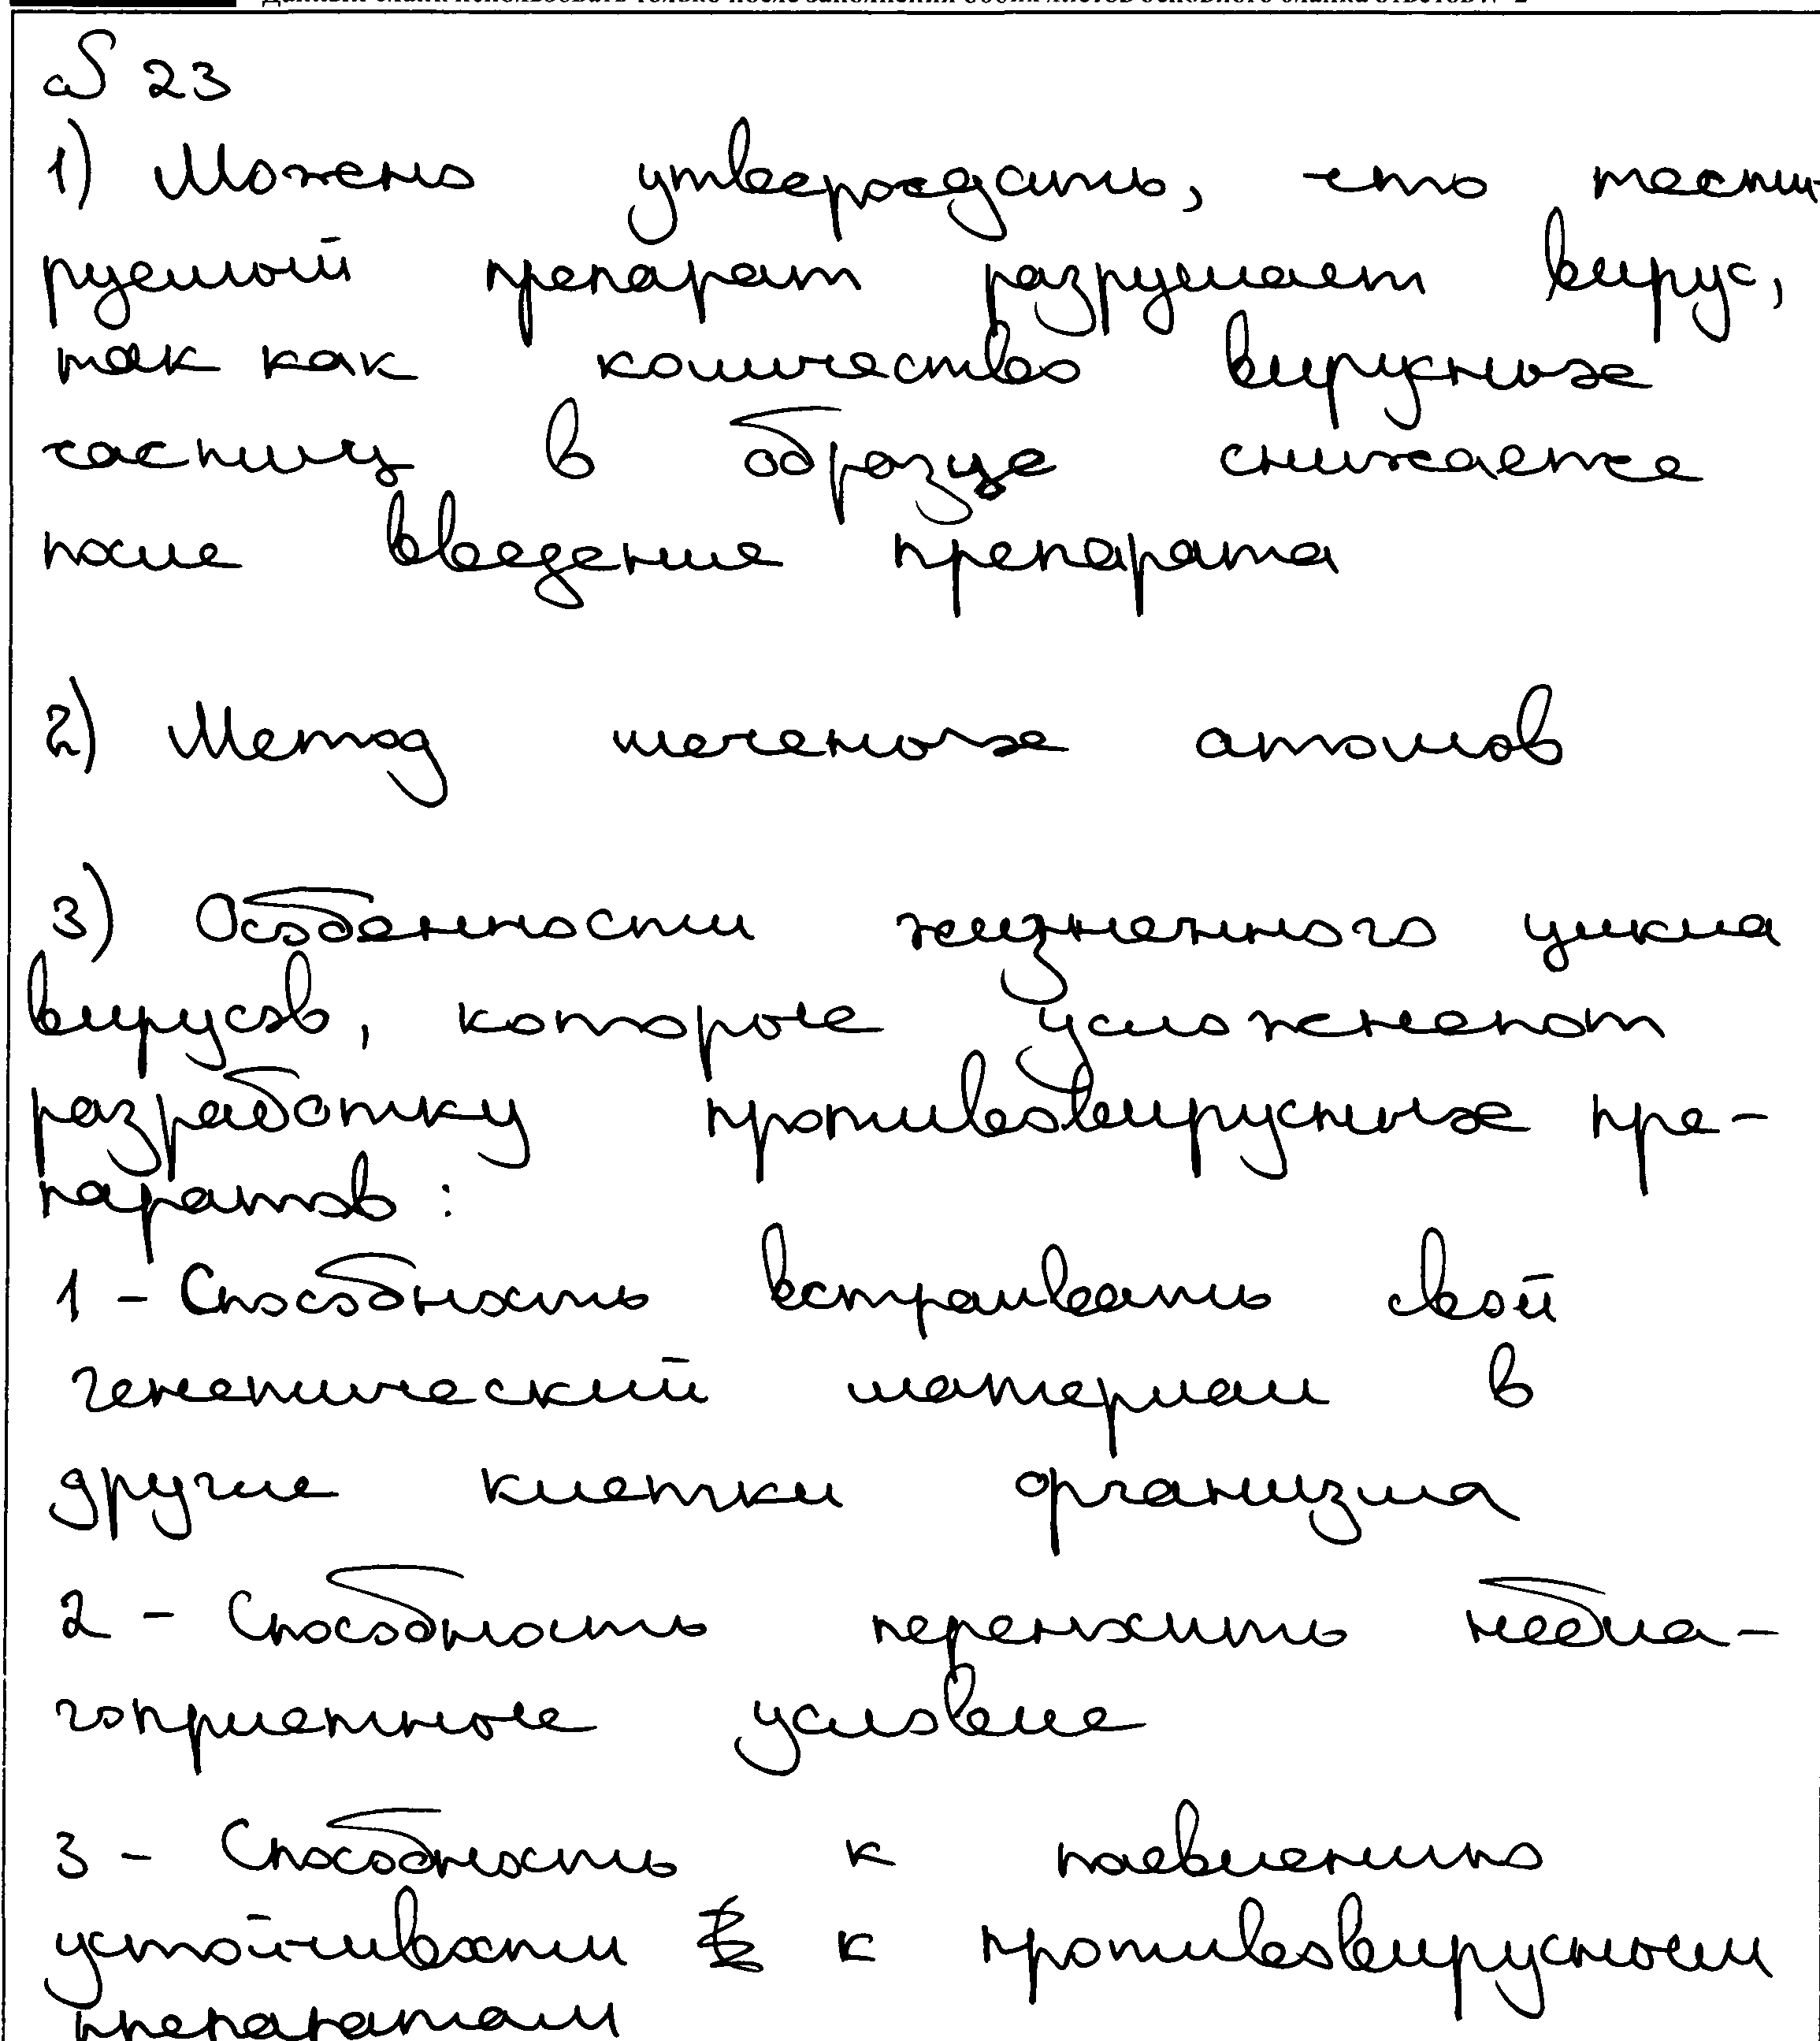 № 23
1) Можно утверждать, что тести-
руемый препарат разрушает вирус,
так как количество вирусных
частиц в образце снижается
после введения препарата
2) Метод меченых атомов
3) Особенности жизненного цикла
вирусов, которые усложняют
разработку противовирусных пре-
паратов :
1 - Способность встраивать свой
генетический материал в
другие клетки организма
2 - Способность переносить небла-
гоприятные условия
3 - Способность к появлению
устойчивости к противовирусным
препаратам